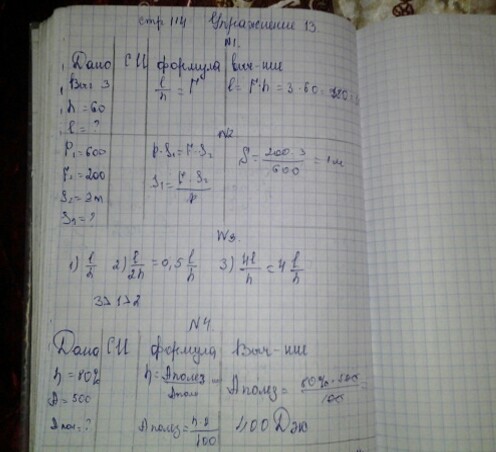 стр 114 Упражнение 13.
N1.
Дано СИ формула выч-ние
Выч 3 l/h = F l = F·h = 3·60 = 180
h = 60
l = ?
N2
F1=600 F·S1=F·S2 S = 200·3/600 = 1м
F2=200 S1 = F·S2/F
S2=3m
S2=?
N3
1) l/h 2) l/2h = 0,5 l/h 3) 4l/h = 4 l/h
3>1>2
N4.
Дано СИ формула Выч-ние
h = 80% h = Aполез/Aполн Aполез = 80%·500/100 =
A = 500
Aпол=? Aполез = h·A/100 400 Дж